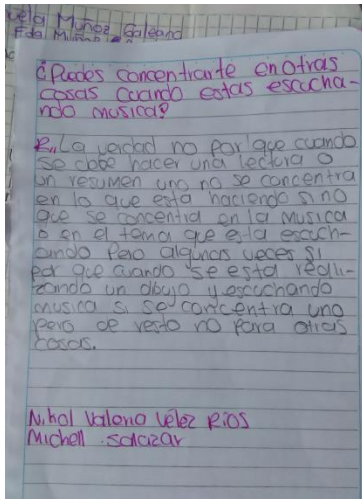 uela Muñoz Galeano
¿Puedes concentrarte en otras
cosas cuando estas escucha-
ndo musica?
R,, La verdad no por que cuando
se debe hacer una lectura o
un resumen uno no se concentra
en lo que esta haciendo sino
que se concentra en la musica
o en el tema que esta escuch-
ando pero algunas veces si
por que cuando se esta reali-
zando un dibujo y escuchando
musica si se concentra uno
pero de resto no para otras
cosas.
Nikol Valeria Vélez Rios
Michell . salazar